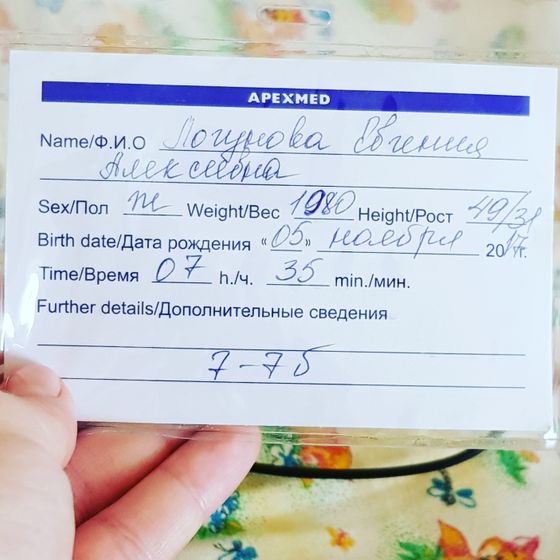 APEXMED
Name/Ф.И.О Логунова Евгения
Алексеевна
Sex/Пол ж Weight/Вес 1980 Height/Рост 49/31
Birth date/Дата рождения «05» ноября 2017г.
Time/Время 07 h./ч. 35 min./мин.
Further details/Дополнительные сведения
7-7б